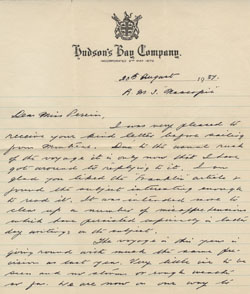 Hudson's Bay Company.
INCORPORATED 2ND MAY 1670
20th August 1937.
R.M.S. Nascopie
Dear Miss
I was very pleased to
receive your kind letter before sailing
from Montreal. Due to the usual rush
of the voyage it is only now that I have
got around to replying to it. I am
glad you liked the Franklin article &
found the subject interesting enough
to read it. It was intended more to
clear up a number of misapprehensions
which have persisted especially in latter
day writings on the subject.
The voyage this year is
going round with much the same
as last year. Very little ice to be
seen and no storms or rough weather
so far. We are now on our way to